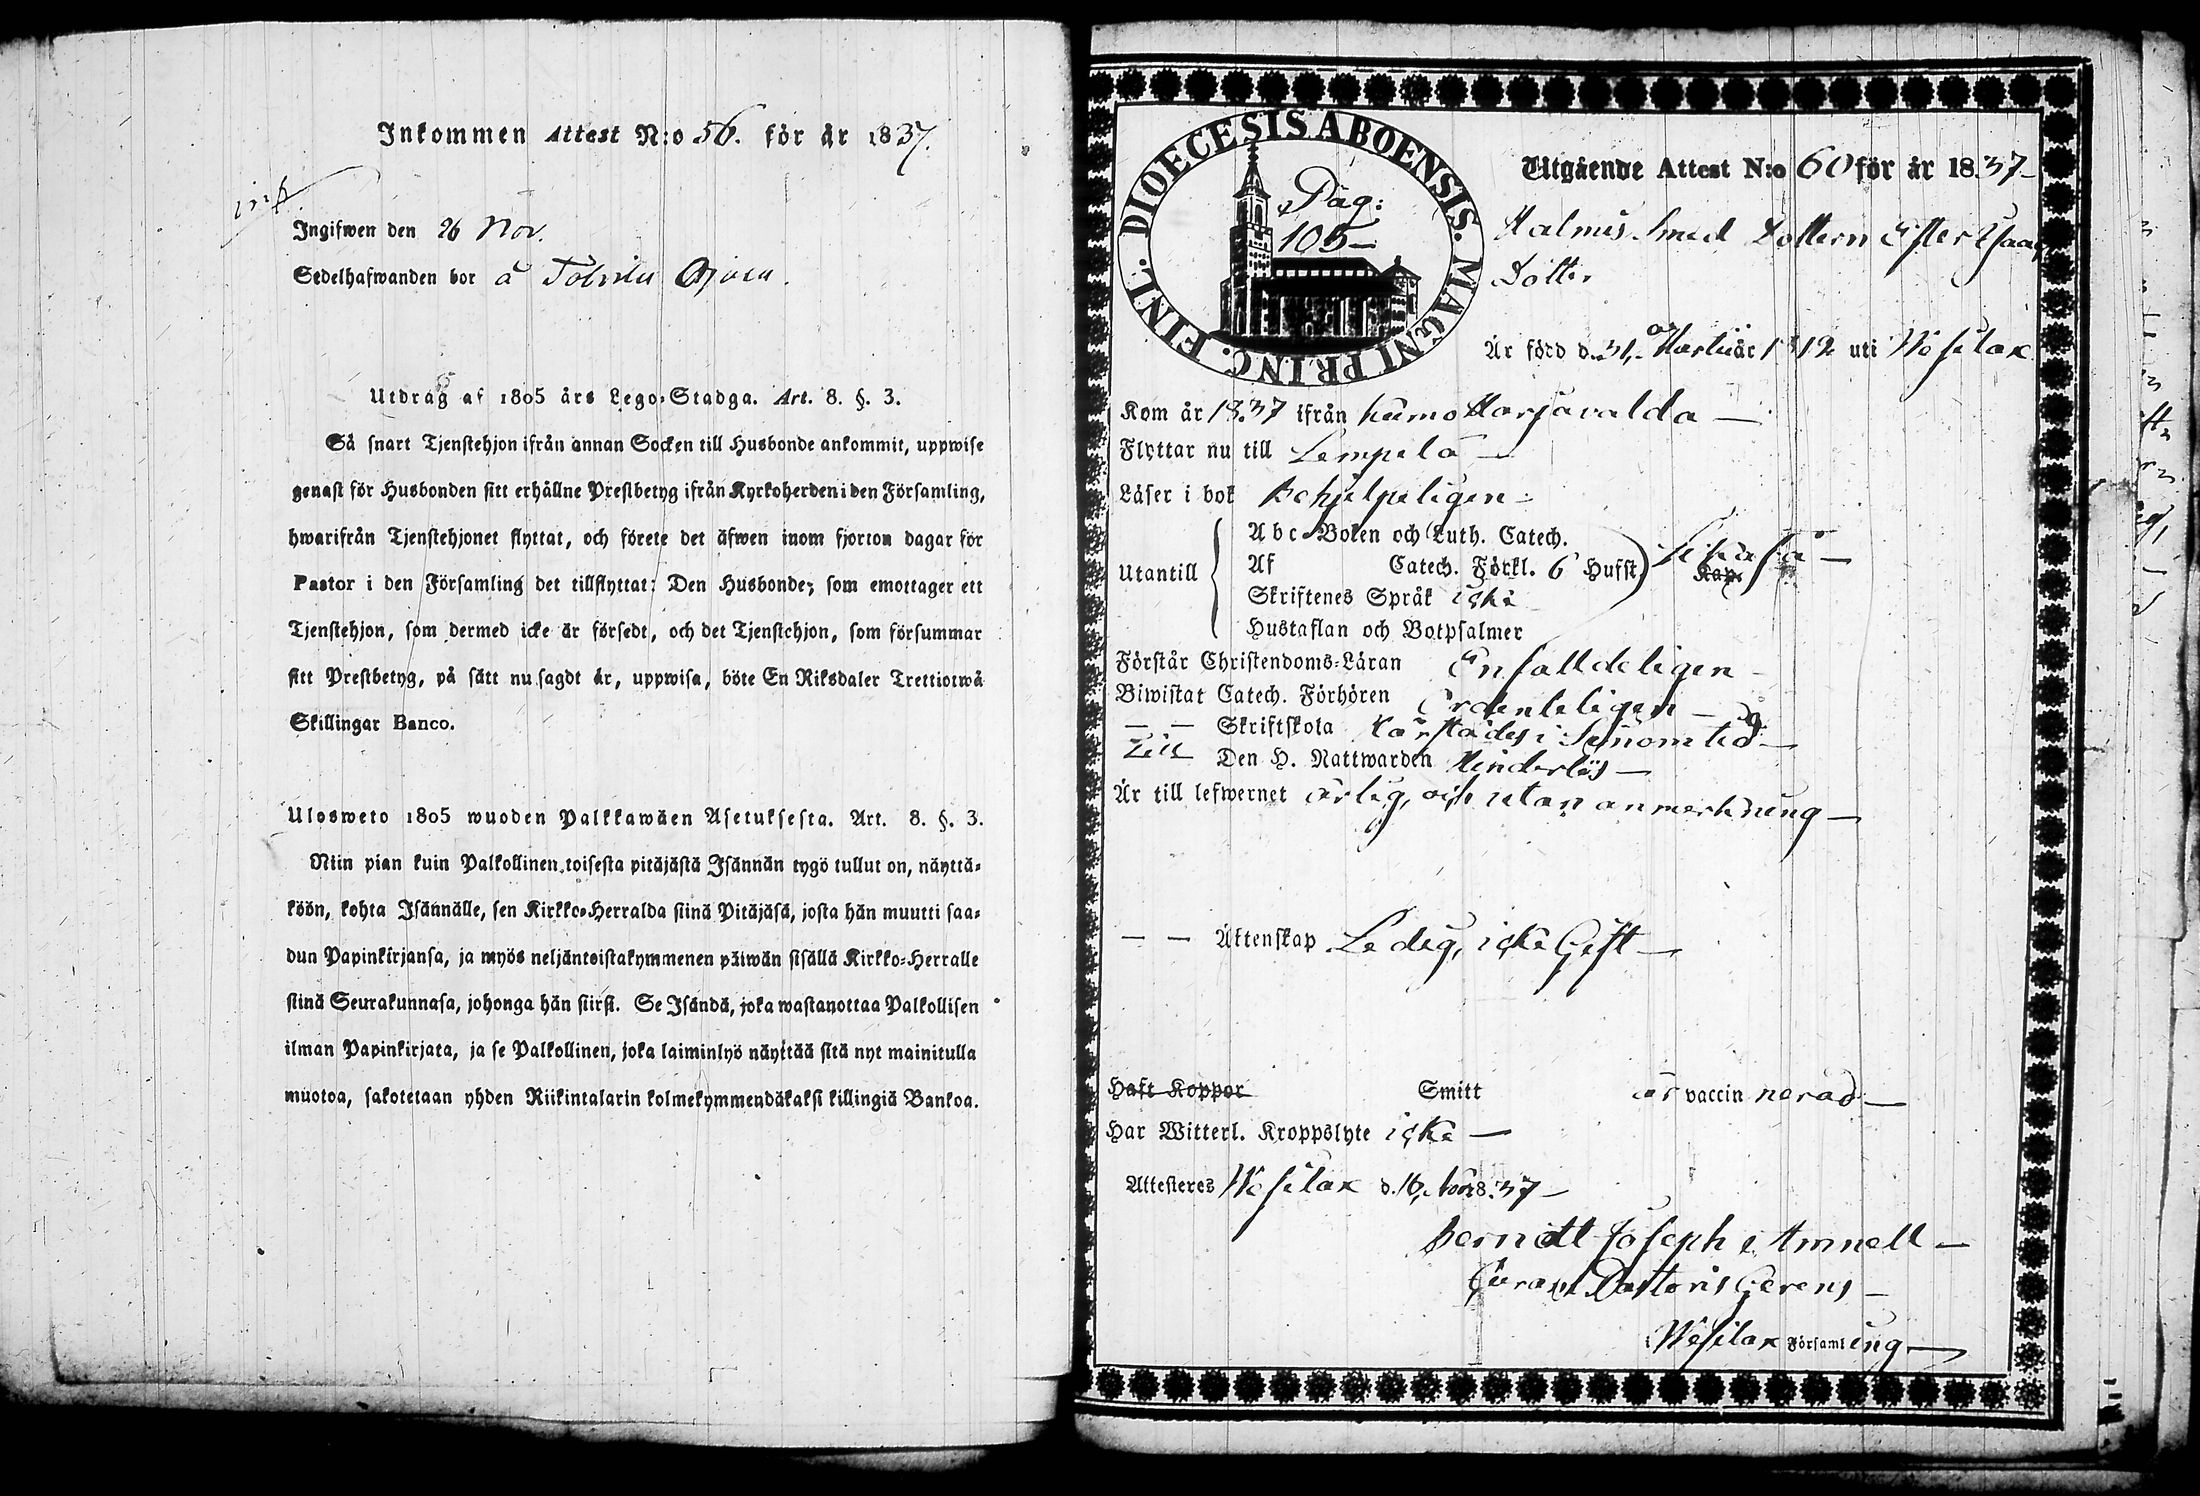 Inkommen Attest N:o 56. för år 1837.
Ingifwen den 26 Nov.
Sedelhafwanden bor å
Utdrag af 1805 års Lego-Stadga. Art. 8. §. 3.
Så snart Tjenstehjon ifrån annan Socken till Husbonde ankommit, uppwise
genast för Husbonden sitt erhållne Prestbetyg ifrån Kyrkoherden i den Församling,
hwarifrån Tjenstehjonet flyttat, och förete det äfwen inom fjorton dagar för
Pastor i den Församling det tillflyttat: Den Husbonde, som emottager ett
Tjenstehjon, som dermed icke är försedt, och det Tjenstehjon, som försummar
sitt Prestbetyg, på sätt nu sagdt är, uppwisa, böte En Riksdaler Trettiotwå
Skillingar Banco.
Ulosweto 1805 wuoden Palkkawäen Asetuksesta. Art. 8. §. 3.
Niin pian kuin Palkollinen toisesta pitäjästä Isännän tygö tullut on, näyttä-
köön, kohta Isännälle, sen Kirkko-Herralda siinä Pitäjäsä, josta hän muutti saa-
dun Papinkirjansa, ja myös neljäntoistakymmenen päiwän sisällä Kirkko-Herralle
siinä Seurakunnasa, johonga hän siirsi. Se Isändä, joka wastanottaa Palkollisen
ilman Papinkirjata, ja se Palkollinen, joka laiminlyö näyttää sitä nyt mainitulla
muotoa, sakotetaan yhden Riikintalarin kolmekymmendäkaksi killingiä Bankoa.
DIOECESIS ABOENSIS. MAGNI PRINC. FINL.
Pag:
105
Utgående Attest N:o 60 för år 1837
Smed Dottern
Dotter
Är född d. 31, Martii år 1812 uti Wesilax
Kom år 1837 ifrån Kumo Harjavalda
Flyttar nu till Lempela
Läser i bok Behjelpeligen
Utantill
Abc-Boken och Luth. Catech.
Af Catech. Förkl. 6 Hufst. Kap.
Skriftenes Språk icke
Hustaflan och Botpsalmer
Förstår Christendoms-Läran Enfalldeligen
Biwistat Catech. Förhören Ordenteligen
— — Skriftskola i
Till Den H. Nattwarden Hinderlös
Är till lefwernet ärlig, och utan anmerkning
— — Äktenskap Ledig, icke Gift
Haft Koppor Smitt är vaccinnerad
Har Witterl. Kroppslyte icke
Attesteres Wesilax d. 16, Nov. 1837
Berndtt Joseph Amnell
Curam Pastoris Gerens
i Wesilax Församlling